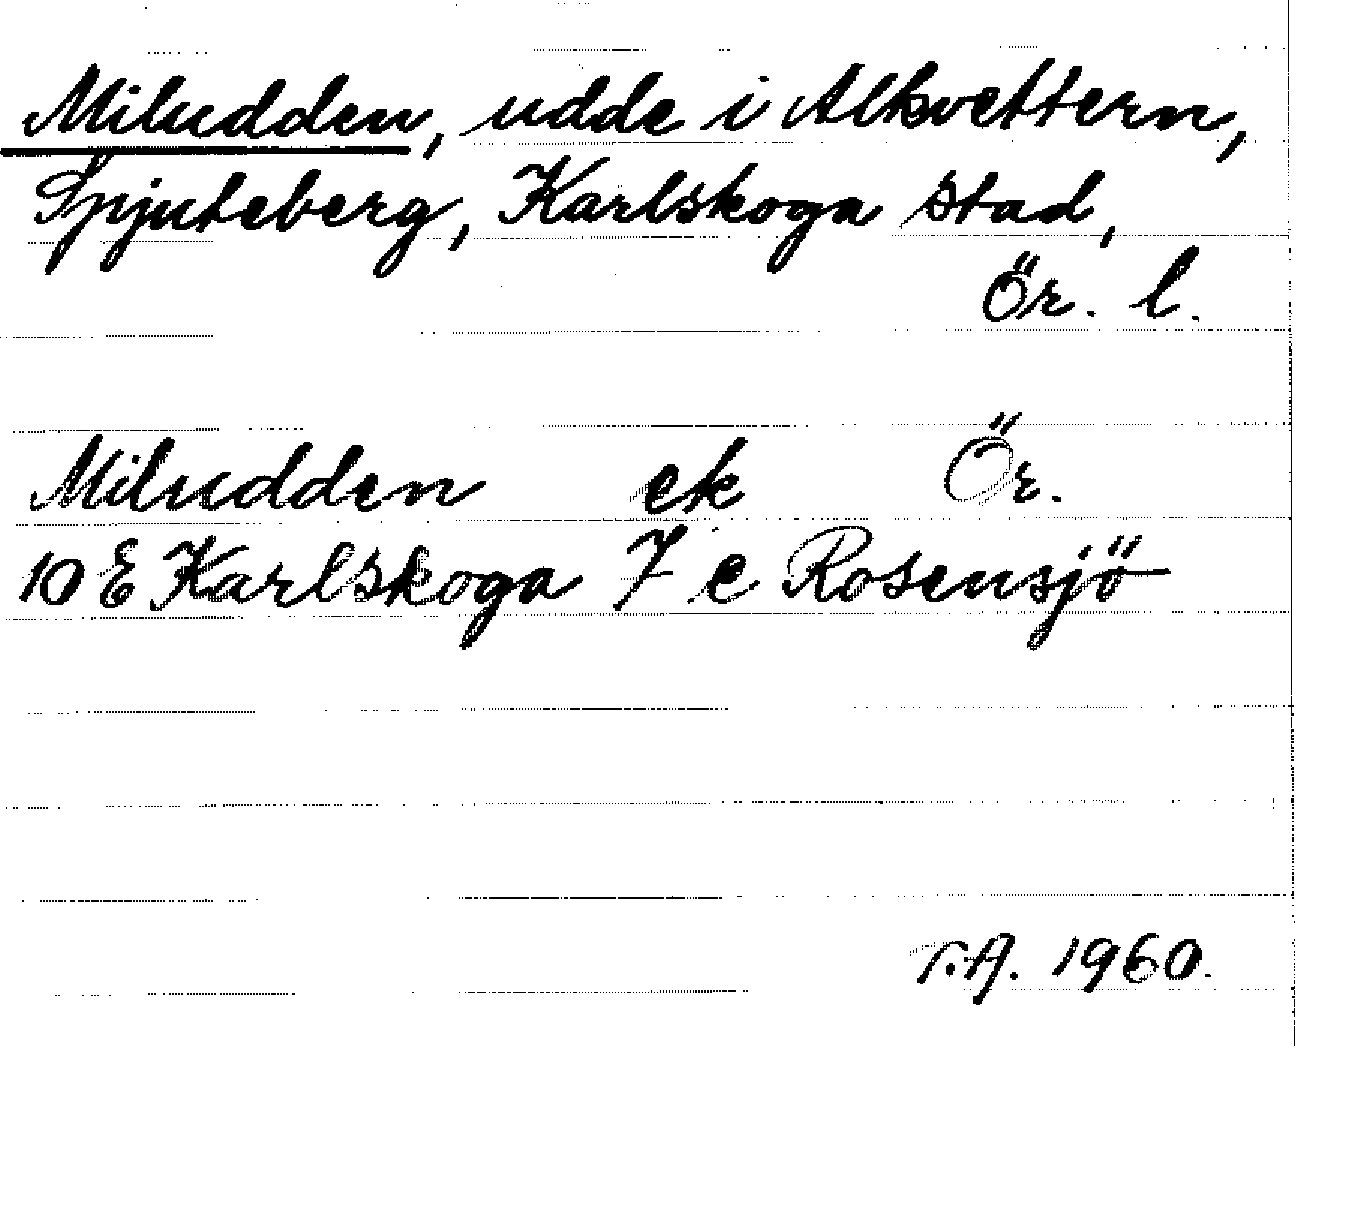 Miludden, udde i Alkvettern,
Spjuteberg, Karlskoga stad,
Ör. l.
Miludden ek Ör.
10 E Karlskoga 7 e Rosensjö
T.A. 1960.